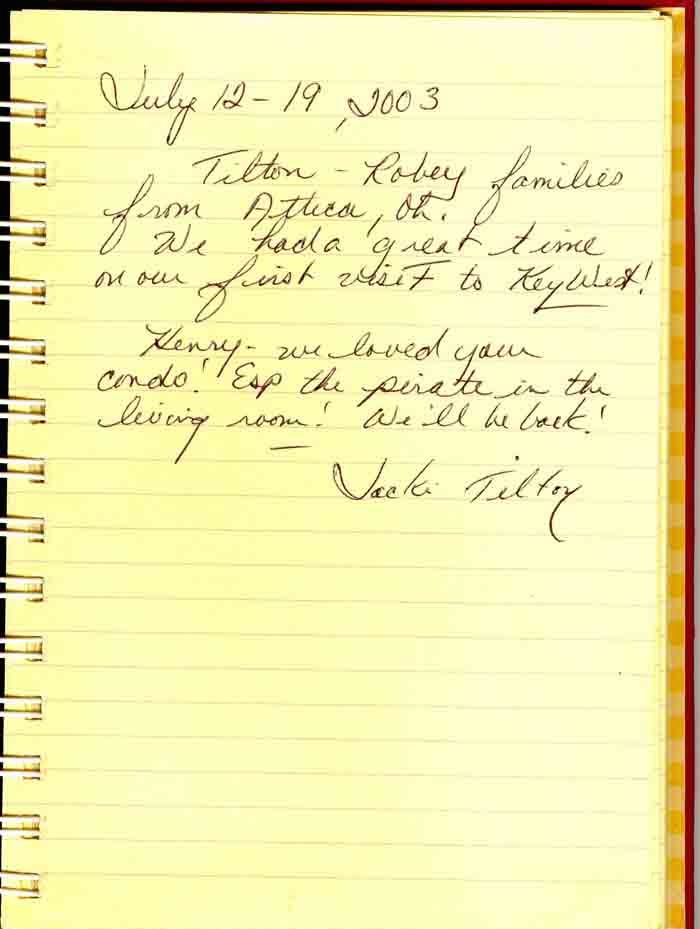 July 12-19, 2003
Tilton - Robey families
from Attica, Oh.
We had a great time
on our first visit to Key West!
Henry - we loved your
condo! Esp the pirate in the
living room! We'll be back!
Jacki Tilton